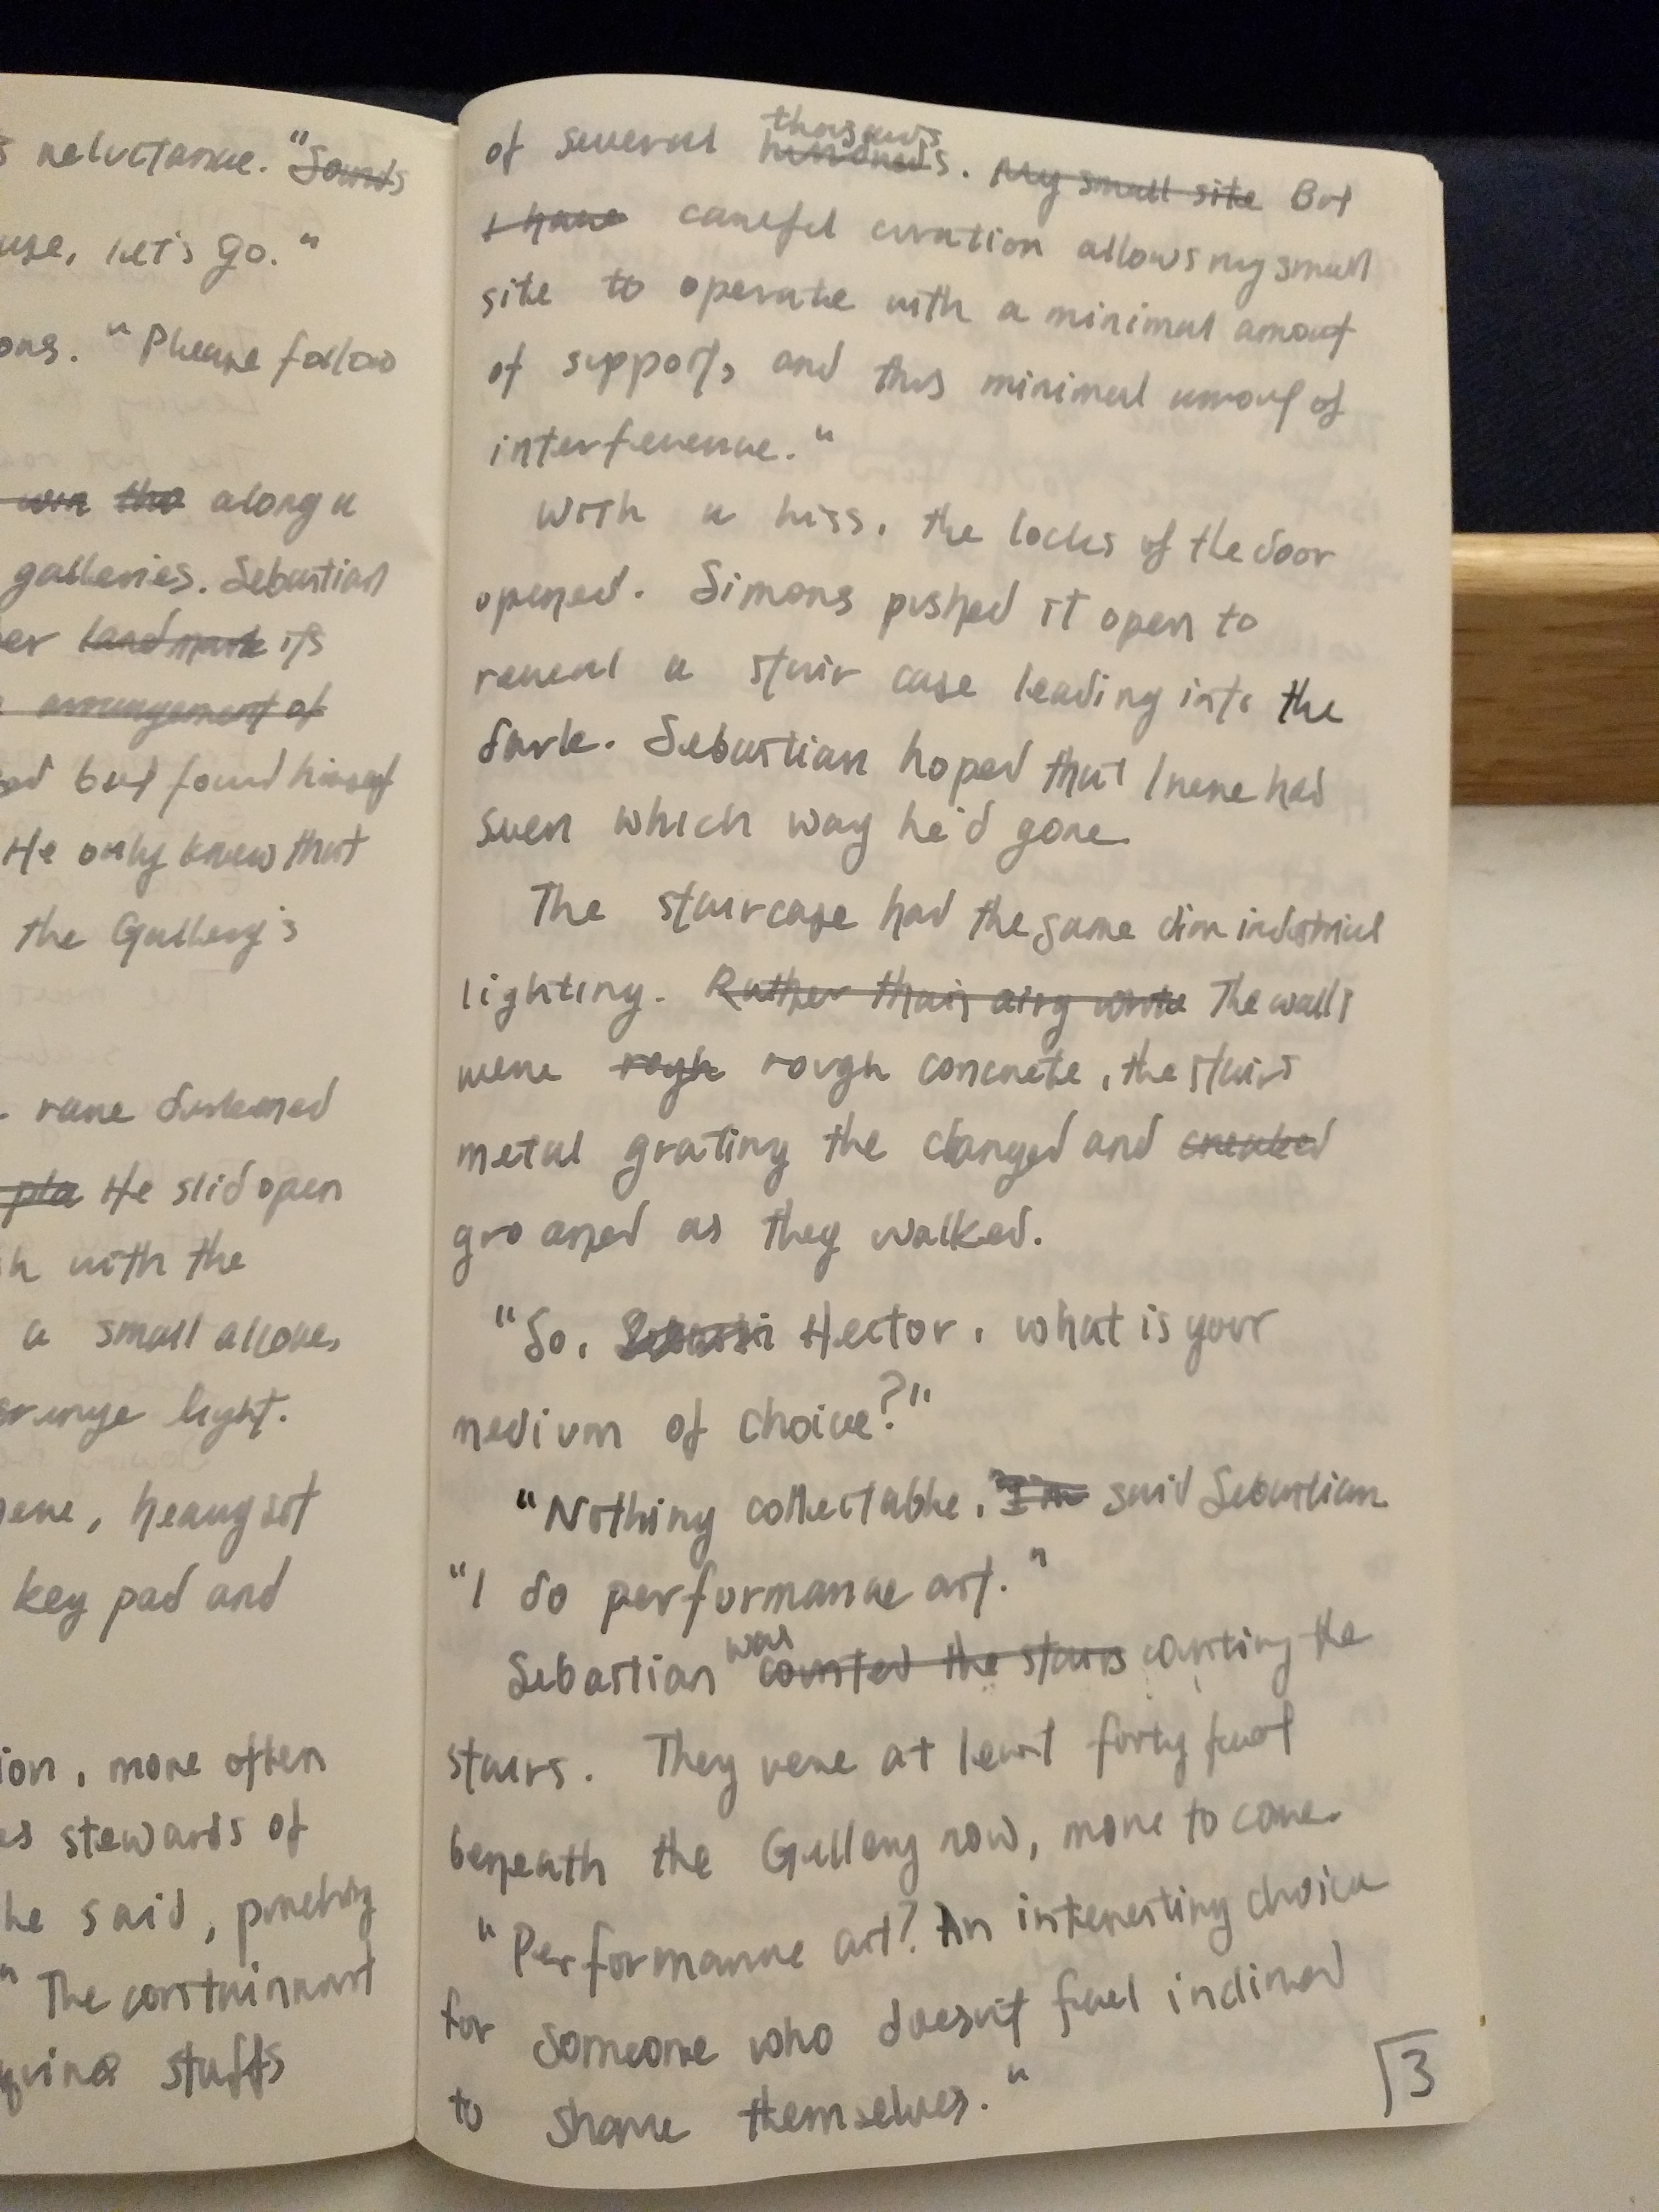 s reluctance. "Sounds
use, let's go."
ons. "Please follow
the along a
galleries. Sebastian
er landmark its
arrangement of
od but found himself
He only knew that
the Gallery's
rane darkened
pla He slid open
h with the
a small alcove,
orange light.
ene, heavy set
key pad and
ion, more often
es stewards of
he said, punching
" The containment
stuffs
thousands
of several hundreds. My small site But
I have careful curation allows my small
site to operate with a minimal amount
of support, and thus minimal amout of
interference."
With a hiss, the locks of the door
opened. Simons pushed it open to
reveal a stair case leading into the
dark. Sebastian hoped that Irene had
seen which way he'd gone.
The staircase had the same dim industrial
lighting. Rather than airy white The walls
were rogh rough concrete, the stairs
metal grating the clanged and creaked
groaned as they walked.
"So, Sebasti Hector, what is your
medium of choice?"
"Nothing collectable," I'm said Sebastian.
"I do performance art."
was
Sebastian counted the stairs counting the
stairs. They were at least forty feet
beneath the Gallery now, more to come.
"Performance art? An interesting choice
for someone who doesn't feel inclined
to share themselves."
√3